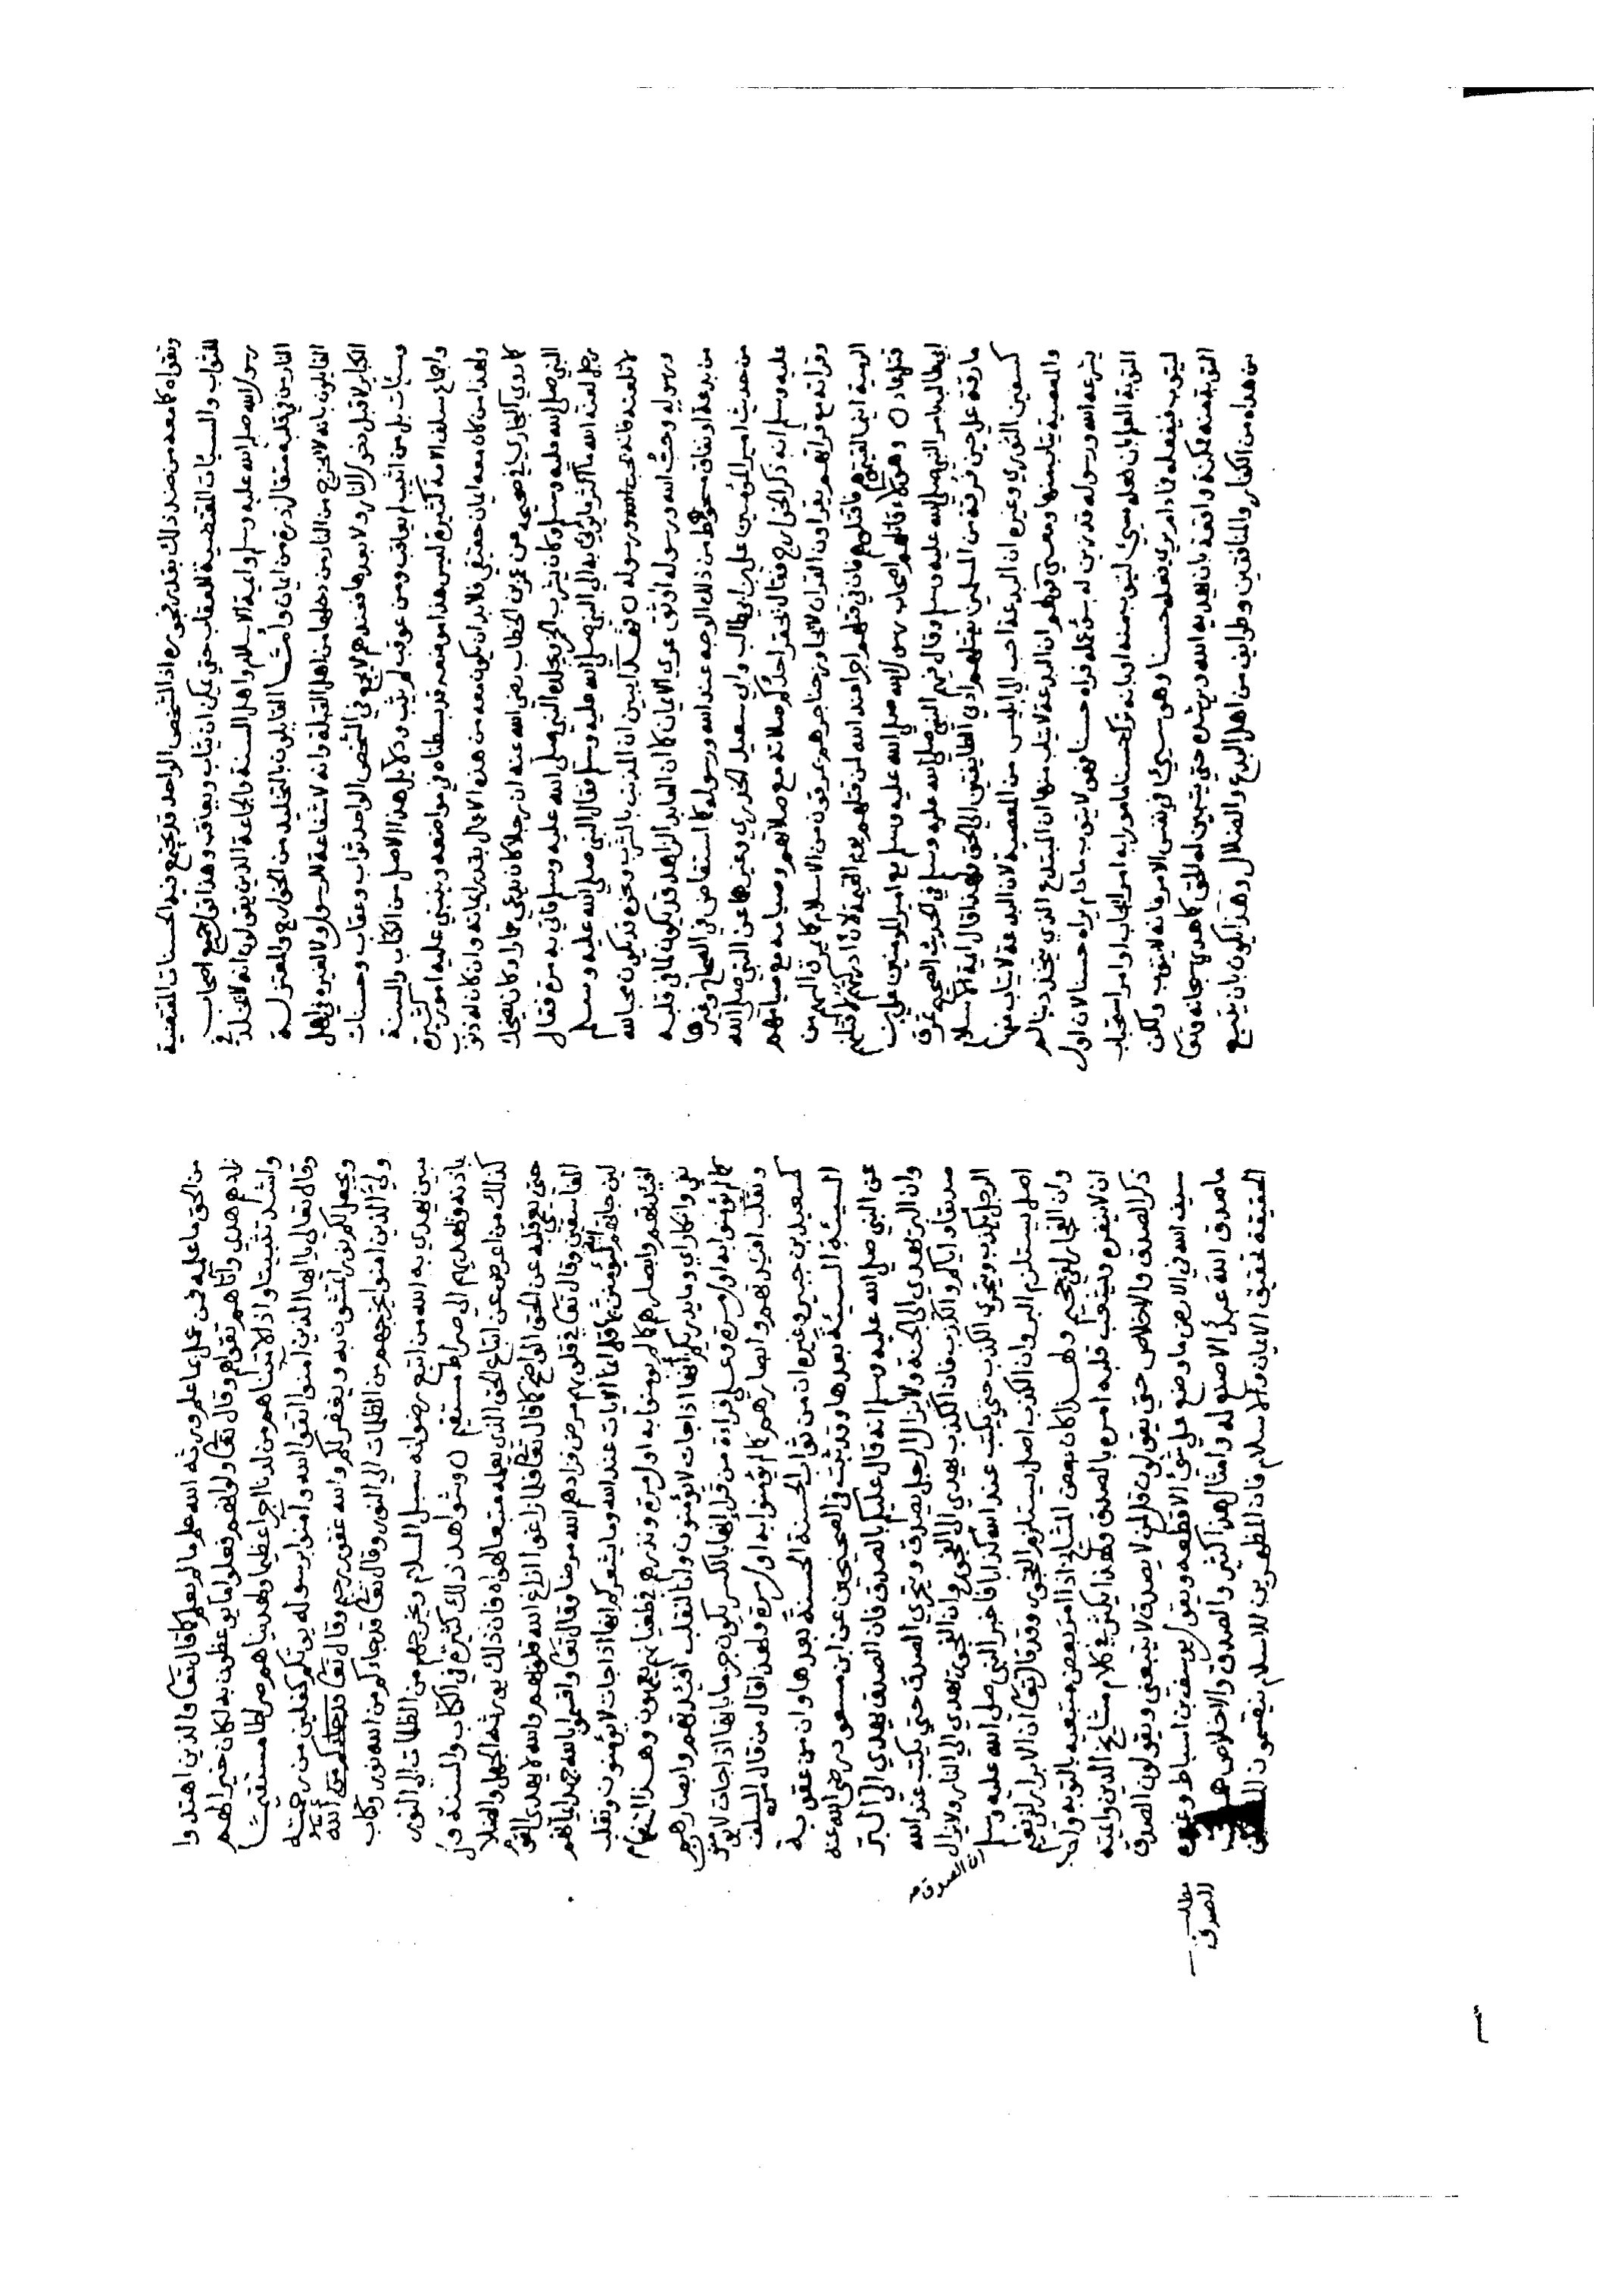 وتقواه كما معه من ضد ذلك بقدر فجوره اذ الشخص الواحد قد يجتمع فيه الحسنات المقتضية
للثواب والسيئات المقتضية للعقاب حتى يمكن ان يثاب ويعاقب وهذا قول جميع اصحاب
رسول الله صلى الله عليه وسلم وايمة الاسلام واهل السنة والجماعة الذين يقولون انه لا يخلد في
النار من في قلبه مثقال ذرة من ايمان واما القايلون بالتخليد من الخوارج والمعتزلة
القايلون بانه لا يخرج من النار من دخلها من اهل القبلة وانه لا شفاعة للرسول ولا لغيره في اهل
الكباير لا قبل دخول النار ولا بعدها فعندهم لا يجتمع في الشخص الواحد ثواب وعقاب وحسنات
وسيئات بل من اثيب لم يعاقب ومن عوقب لم يثب ودلايل هذا الاصل من الكتاب والسنة
واجماع سلف الامة كثيرة ليس هذا موضعه قد بسطناه في مواضعه وينبني عليه امور كثيرة
ولهذا من كان معه ايمان حقيقي فلا بد ان يكون معه من هذه الاعمال بقدر ايمانه وان كان له ذنوب
كما روى البخاري في صحيحه عن عمر بن الخطاب رضي الله عنه ان رجلا كان يدعى حمارا وكان يضحك
النبي صلى الله عليه وسلم وكان يشرب الخمر ويجلده النبي صلى الله عليه وسلم فاتي به مرة فقال
رجل لعنه الله ما اكثر ما يؤتى به الى النبي صلى الله عليه وسلم فقال النبي صلى الله عليه وسلم
لا تلعنه فانه يحب الله ورسوله فهذا يبين ان المذنب بالشرب وغيره قد يكون محبا لله
ورسوله وحب الله ورسوله اوثق عرى الايمان كما ان العابد الزاهد قد يكون لما في قلبه
من بدعة ونفاق مسخوطا من ذلك الوجه عند الله ورسوله كما استفاض في الصحاح وغيرها
من حديث امير المؤمنين علي بن ابي طالب وابي سعيد الخدري وغيرهما عن النبي صلى الله
عليه وسلم انه ذكر الخوارج فقال يحقر احدكم صلاته مع صلاتهم وصيامه مع صيامهم
وقراته مع قراتهم يقراون القران لا يجاوز حناجرهم يمرقون من الاسلام كما يمرق السهم من
الرمية اينما لقيتموهم فاقتلوهم فان في قتلهم اجرا عند الله لمن قتلهم يوم القيمة لان ادركتهم لاقتلنهم
قتل عاد وهؤلاء قاتلهم اصحاب رسول الله صلى الله عليه وسلم مع امير المؤمنين علي بن
ابي طالب بامر النبي صلى الله عليه وسلم وقال فيهم النبي صلى الله عليه وسلم في الحديث الصحيح تمرق
مارقة على حين فرقة من المسلمين يقتلهم ادنى الطايفتين الى الحق ولهذا قال ايمة الاسلام
كسفين الثوري وغيره ان البدعة احب الى ابليس من المعصية لان البدعة لا يتاب منها
والمعصية يتاب منها ومعنى قولهم ان البدعة لا يتاب منها ان المبتدع الذي يتخذ دينا لم
يشرعه الله ورسوله قد زين له سوء عمله فراه حسنا فهو لا يتوب ما دام يراه حسنا لان اول
التوبة العلم بان فعله سيئ ليتوب منه او بانه ترك حسنا مامورا به امر ايجاب او امر استحباب
ليتوب فيفعله فما دام يرى فعله حسنا وهو سيئ في نفس الامر فانه لا يتوب ولكن
التوبة منه ممكنة واقعة بان يهديه الله ويرشده حتى يتبين له الحق كما هدى سبحانه وتعالى
من هداه من الكفار والمنافقين وطوايف من اهل البدع والضلال وهذا يكون بان يتبع
من الحق ما علمه فمن عمل بما علم ورثه الله علم ما لم يعلم كما قال تعالى والذين اهتدوا
زادهم هدى واتاهم تقواهم وقال تعالى ولو انهم فعلوا ما يوعظون به لكان خيرا لهم
واشد تثبيتا واذا لاتيناهم من لدنا اجرا عظيما ولهديناهم صراطا مستقيما
وقال تعالى يا ايها الذين امنوا اتقوا الله وامنوا برسوله يؤتكم كفلين من رحمته
ويجعل لكم نورا تمشون به ويغفر لكم والله غفور رحيم وقال تعالى الله
ولي الذين امنوا يخرجهم من الظلمات الى النور وقال تعالى قد جاءكم من الله نور وكتاب
مبين يهدي به الله من اتبع رضوانه سبل السلام ويخرجهم من الظلمات الى النور
باذنه ويهديهم الى صراط مستقيم وشواهد ذلك كثيرة في الكتاب والسنة و
كذلك من اعرض عن اتباع الحق الذي يعلمه متبعا لهواه فان ذلك يورثه الجهل والضلال
حتى يعمى قلبه عن الحق الواضح كما قال تعالى فلما زاغوا ازاغ الله قلوبهم والله لا يهدي القوم
الفاسقين وقال تعالى في قلوبهم مرض فزادهم الله مرضا وقال تعالى واقسموا بالله جهد ايمانهم
لئن جاءتهم اية ليؤمنن بها قل انما الايات عند الله وما يشعركم انها اذا جاءت لا يؤمنون ونقلب
افئدتهم وابصارهم كما لم يؤمنوا به اول مرة ونذرهم في طغيانهم يعمهون وهذا استفهام
نفي وانكار اي وما يدريكم انها اذا جاءت لا يؤمنون وانا نقلب افئدتهم وابصارهم
كما لم يؤمنوا به اول مرة وعلى قراءة من قرا انها بالكسر يكون جزما بانها اذا جاءت لا يؤمنون
ونقلب افئدتهم وابصارهم كما لم يؤمنوا به اول مرة ولهذا قال من قال من السلف
كسعيد بن جبير وغيره ان من ثواب الحسنة الحسنة بعدها وان من عقوبة
السيئة السيئة بعدها وقد ثبت في الصحيحين عن ابن مسعود رضي الله عنه
عن النبي صلى الله عليه وسلم انه قال عليكم بالصدق فان الصدق يهدي الى البر
وان البر يهدي الى الجنة ولا يزال الرجل يصدق ويتحرى الصدق حتى يكتب عند الله
صديقا واياكم والكذب فان الكذب يهدي الى الفجور وان الفجور يهدي الى النار ولا يزال
الرجل يكذب ويتحرى الكذب حتى يكتب عند الله كذابا فاخبر النبي صلى الله عليه وسلم
اصل يستلزم البر وان الكذب اصل يستلزم الفجور وقد قال تعالى ان الابرار لفي نعيم
وان الفجار لفي جحيم ولهذا كان بعض المشايخ اذا امر بعض متبعيه بالتوبة واحب
ان لا ينفره ويتعب قلبه امره بالصدق ولهذا يكثر في كلام مشايخ الدين وايمته
ذكر الصدق والاخلاص حتى يقولون قل لمن لا يصدق لا يتبعني ويقولون الصدق
سيف الله في الارض ما وضع على شيئ الا قطعه ويقول يوسف بن اسباط وغيره
ما صدق الله عبد الا صنع له وامثال هذا كثير والصدق والاخلاص هما
الحقيقة تحقيق الايمان والاسلام فان المظهرين للاسلام ينقسمون الى
ان الصدق
مطلب
الصدق
أ